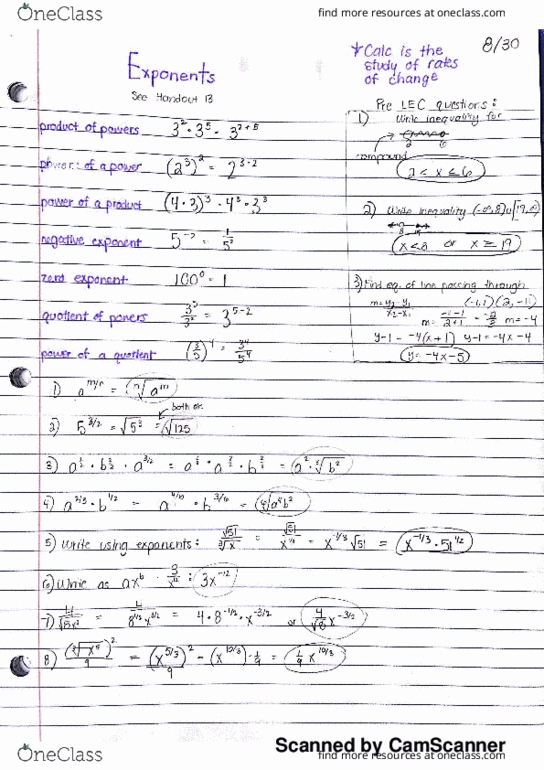 OneClass
find more resources at oneclass.com
8/30
Exponents
See Handout 13
*Calc is the
study of rates
of change
product of powers 3² · 3⁵ = 3²⁺⁵
power of a power (2³)² = 2³·²
power of a product (4·3)³ = 4³·3³
negative exponent
zero exponent 100⁰ = 1
quotient of powers = 3⁵⁻²
power of a quotient (3/5)⁴ = 3⁴/5⁴
Pre LEC questions:
1) Write inequality for
compound
2 < x ≤ 6
2) Write inequality (-∞,8)∪[19,∞)
x<8 or x ≥ 19
3) Find eq. of line passing through
(-1,1)(2,-11)
m=-4
y-1 = -4(x+1) y-1=-4x-4
y=-4x-5
1)
2) 5^(3/2) = √5³ = √125
both ok
3)
4)
5) Write using exponents: ∛x = x^(-1/3) √51 = x^(-1/3) · 51^(1/2)
6) Write as ax^b 3x⁻¹²
7) = 4·8^(-1/2) · x^(-3/2) or 4/√8 x^(-3/2)
8) = (x^(5/3))²/9 = (x^(10/3)) · 1/9 = 1/9 x^(10/3)
OneClass
Scanned by CamScanner
find more resources at oneclass.com